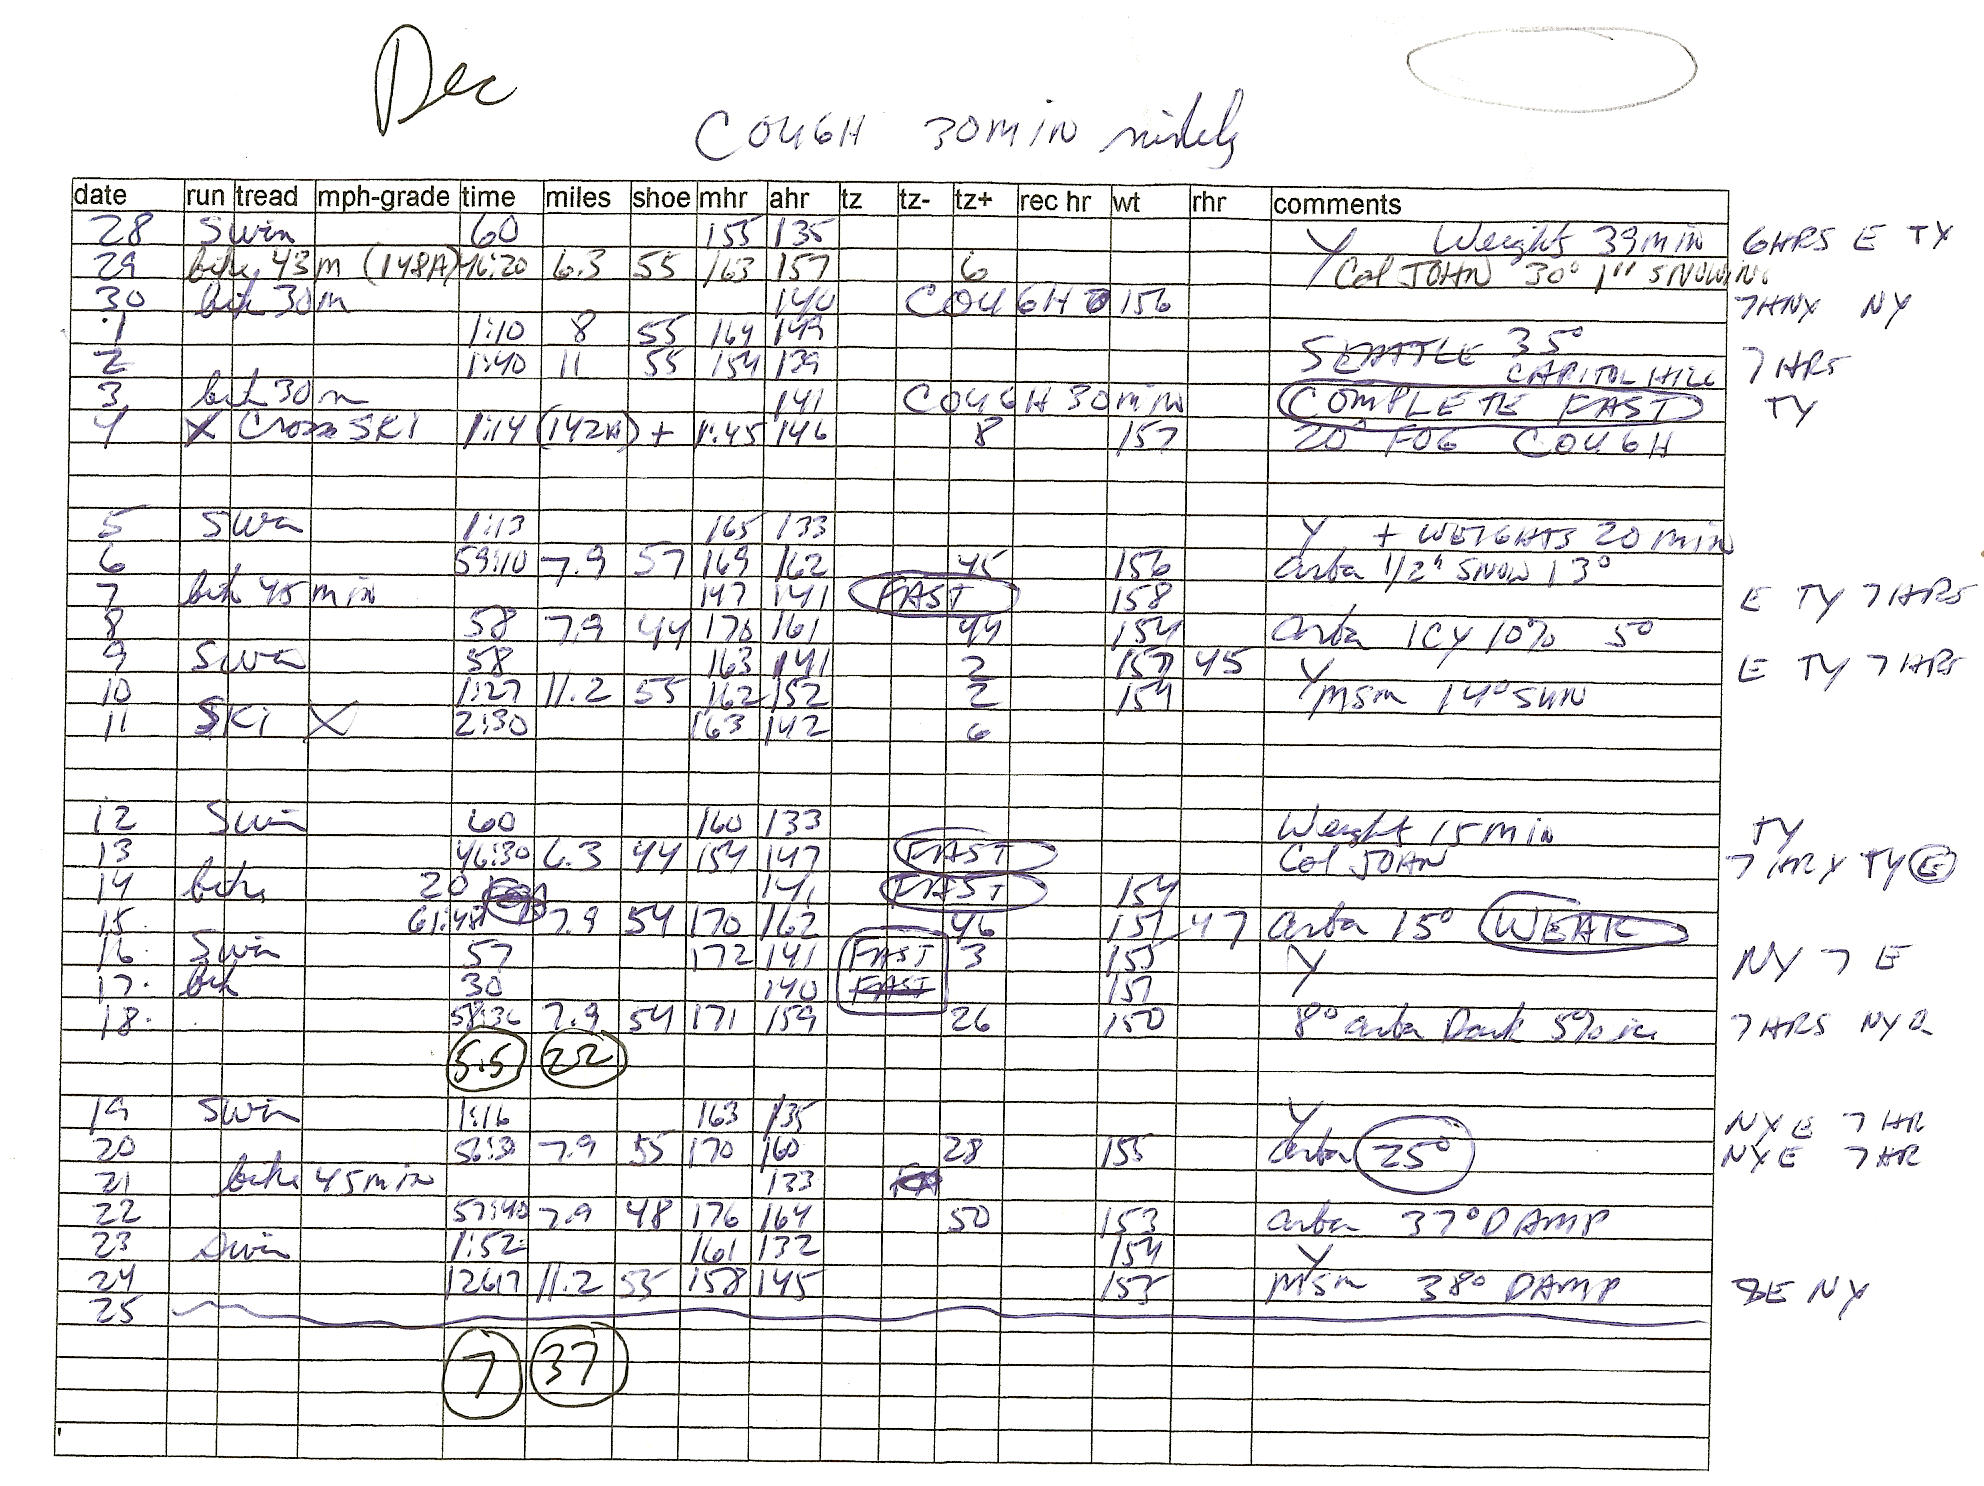 Dec
COUGH 30 MIN
date run tread mph-grade time miles shoe mhr ahr tz tz- tz+ rec hr wt rhr comments
28 Swim 60 155 135 Y Weights 39 min 6 HRS E TY
29 bike 43 m (148A) 46:20 6.3 55 163 157 6 Col JOHN 30° 1" SNOWING
30 bik 30 m 140 COUGH 156 NY
1 1:10 8 55 164 149 SEATTLE 35°
2 1:40 11 55 154 139 CAPITOL HILL 7 HRS
3 bik 30 m 141 COUGH 30 min COMPLETE FAST TY
4 X Cross SKI 1:14 (142A) + 1:45 146 8 157 20° FOG COUGH
5 Swim 1:13 165 133 Y + WEIGHTS 20 min
6 59:10 7.9 57 169 162 45 156 arba 1/2" SNOW 13°
7 bik 45 min 147 141 FAST 158 E TY 7 HRS
8 58 7.9 44 170 161 44 154 arba ICY 10% 5°
9 Swim 58 163 141 2 157 45 Y E TY 7 HRS
10 1:27 11.2 55 162 152 2 154 msm 14° SUN
11 SKI X 2:30 163 142 6
12 Swim 60 160 133 Weights 15 min TY
13 46:30 6.3 44 154 147 FAST Col JOHN 7 HR TY E
14 bike 20 141 FAST 154
15 61:45 7.9 54 170 162 46 151 47 arba 15° WEAK
16 Swim 57 172 141 FAST 3 155 Y NY 7 E
17 bik 30 140 FAST 151 Y
18 58:36 7.9 54 171 159 26 150 8° arba Dark 5% ice 7 HRS NY
5.5 22
19 Swim 1:16 163 135 Y NY E 7 HR
20 56:30 7.9 55 170 160 28 155 arba 25° NY E 7 HR
21 bike 45 min 133
22 57:40 7.9 48 176 164 50 153 arba 37° DAMP
23 Swim 1:52 161 132 154 Y
24 1:26:17 11.2 55 158 145 153 msm 38° DAMP 8 E NY
25
7 37